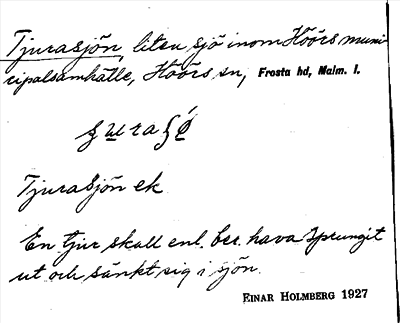 Tjurasjön, liten sjö inom Höörs muni-
cipalsamhälle, Höörs sn, Frosta hd, Malm. l.
Tjurasjön ek
En tjur skall enl. ber. hava sprungit
ut och sänkt sig i sjön.
EINAR HOLMBERG 1927